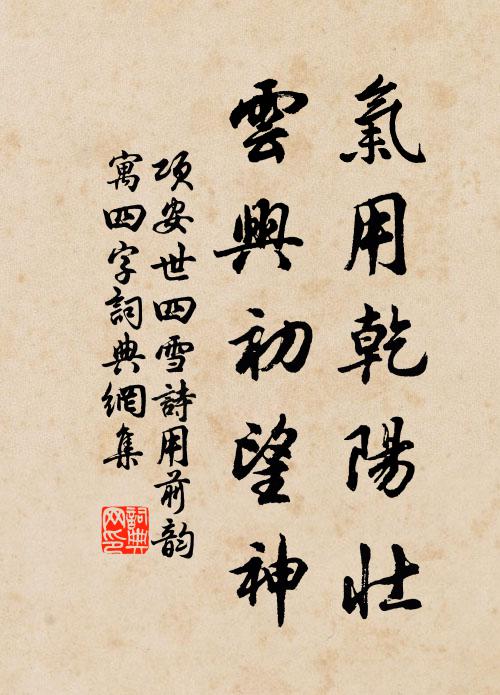 氣用乾陽壯
雲興初望神
項安世四雪詩用前韵
寓四字詞典網集
詞典网印